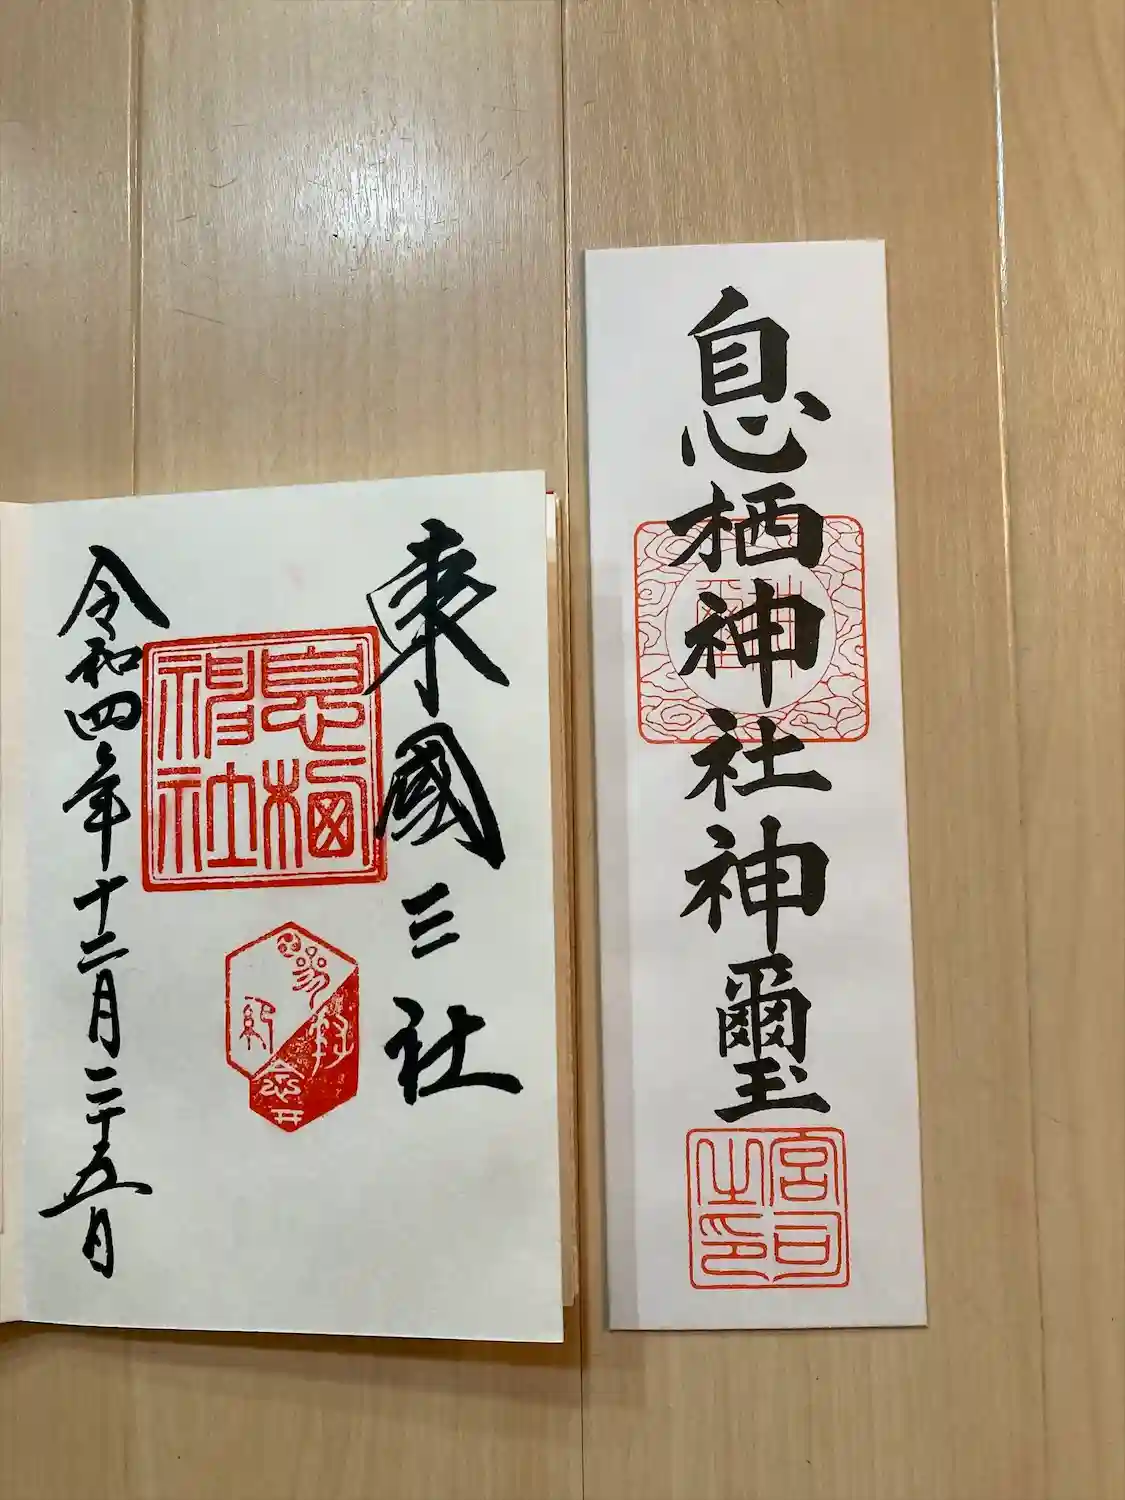 息栖神社神璽
神璽
宮司之印
東國三社
息栖神社
参拝
紀念
令和四年十二月二十五日